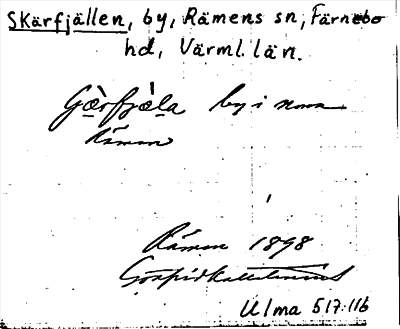 Skärfjällen, by, Rämens sn, Färnebo
hd, Värml. län.
by i norra
Rämen
Rämen 1898
Ulma 517:116